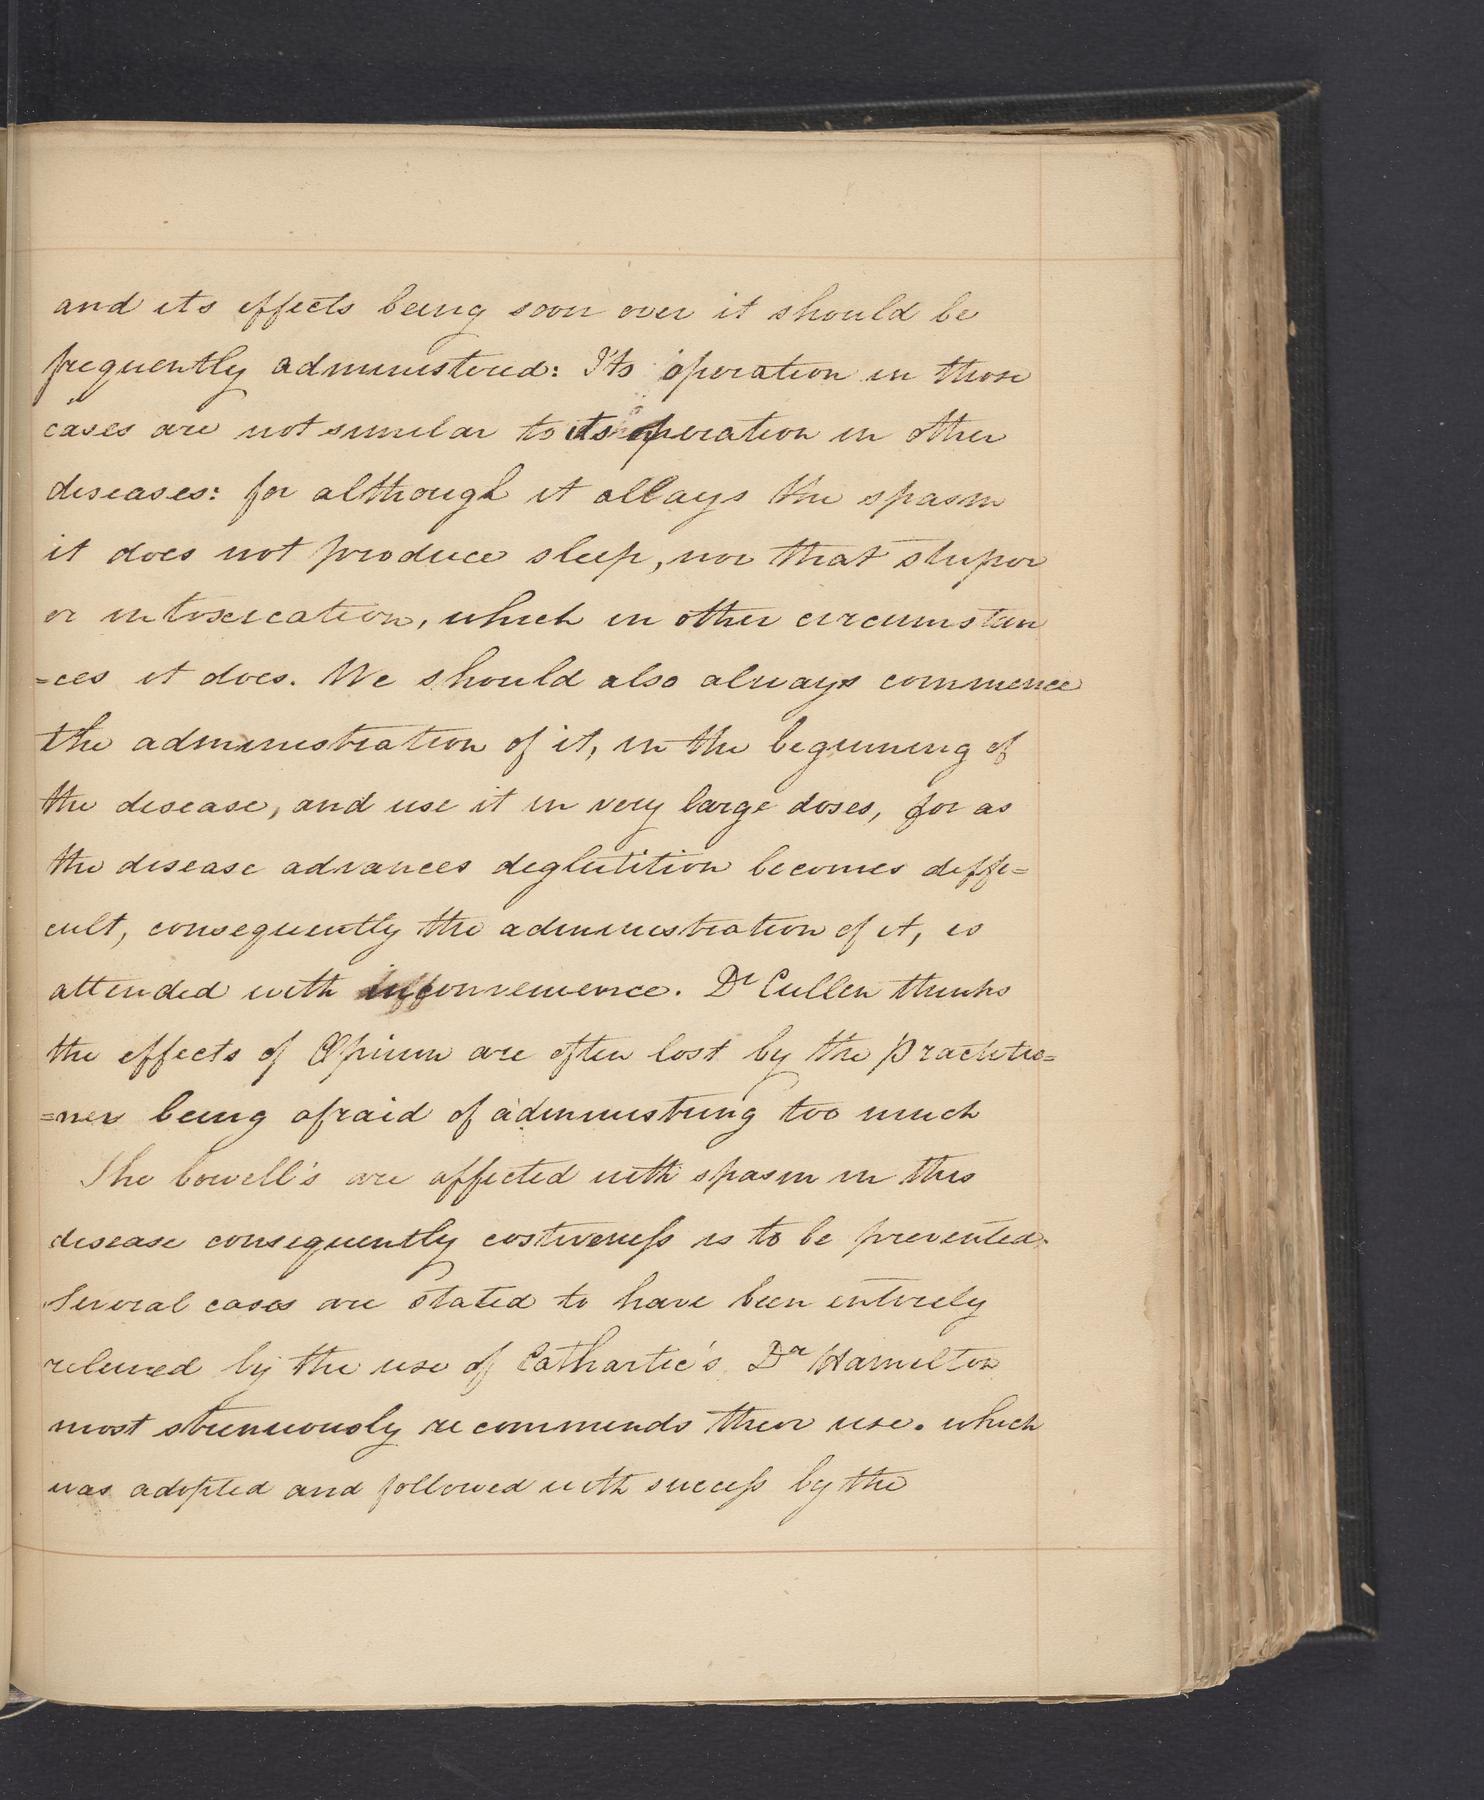 and its effects being soon over it should be
frequently administered: Its operation in those
cases are not similar to its operation in other
diseases: for although it allays the spasm
it does not produce sleep, nor that stupor
or intoxication, which in other circumstan
=ces it does. We should also always commence
the administration of it, in the beginning of
the disease, and use it in very large doses, for as
the disease advances deglutition becomes diffi=
cult, consequently the administration of it, is
attended with inconvenience. Dr Cullen thinks
the effects of Opium are often lost by the Practitio=
=ner being afraid of administring too much
The bowell's are affected with spasm in this
disease consequently costiveness is to be prevented.
Several cases are stated to have been entirely
relieved by the use of Cathartic's Dr Hamilton
most strenuously recommends their use. which
was adopted and followed with success by the